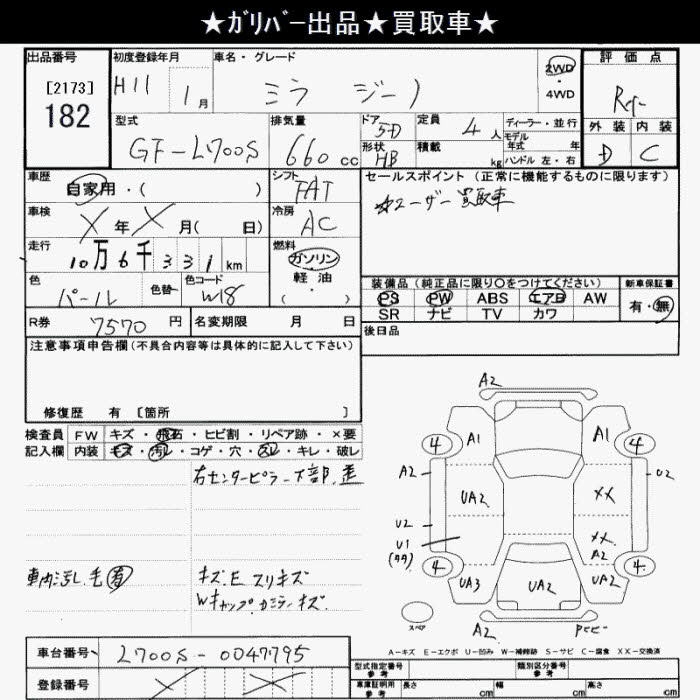 ★ｶﾞﾘﾊﾞｰ出品★買取車★
出品番号 初度登録年月 車名・グレード 2WD ・ 4WD 評価点
[2173] 182
H11 1月 ミラ ジーノ
型式 排気量 ドア 5D 定員 4人 ディーラー・並行
GF-L700S 660cc 形状 HB 積載 kg モデル年式 年
ハンドル 左・右
外装 内装
D C
車歴 自家用・( ) シフト FAT セールスポイント (正常に機能するものに限ります)
車検 X年X月( 日) 冷房 AC ユーザー買取車
走行 10万6千331km 燃料 ガソリン 軽油 ・( )
色 パール 色替 色コード W18
装備品 (純正品に限り〇をつけてください) 新車保証書
PS PW ABS エアB AW 有・無
SR ナビ TV カワ
R券 7570円 名変期限 月 日 後日品
注意事項申告欄(不具合内容等は具体的に記入して下さい)
修復歴 有 [箇所 ]
検査員 FW キズ・飛石・ヒビ割・リペア跡・×要
記入欄 内装 キズ・汚レ・コゲ・穴・スレ・キレ・破レ
右センターピラー下部 歪
キズE スリキズ
A2
4 A1 A1 4
A2 UA2 XX U2
U2
U1 XX A2
4 UA3 UA2 UA2 4
スペア A2
A－キズ E－エクボ U－凹み W－補修跡 S－サビ C－腐食 XX－交換済
車台番号 L700S-0047795
登録番号 X X
型式指定番号 参考 類別区分番号 参考
車庫証明用 参考 長さ cm 幅 cm 高さ cm